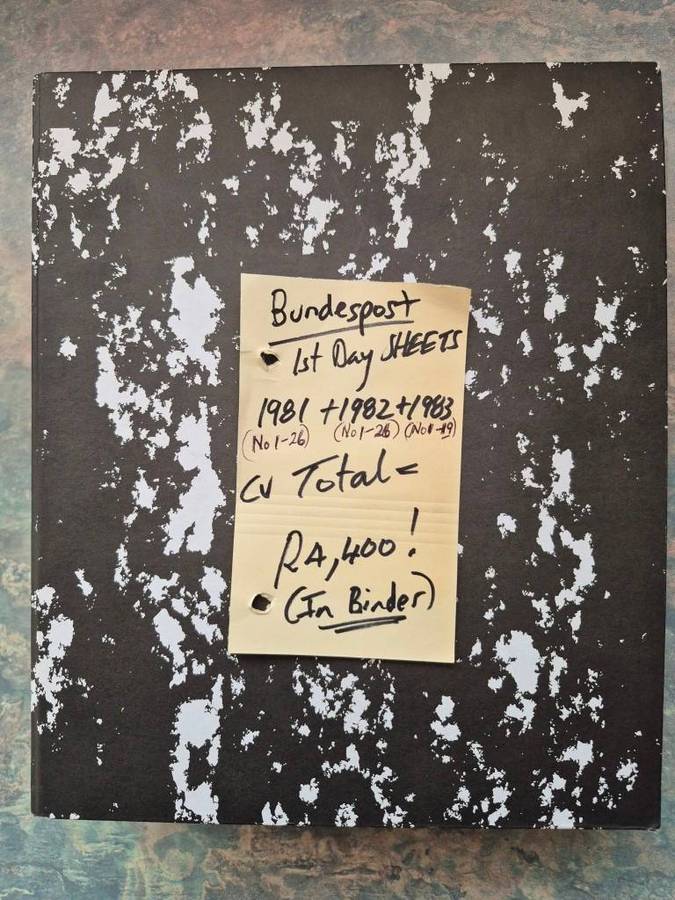 Bundespost
1st Day SHEETS
1981 +1982+1983
(No 1-26) (No 1-26) (No 1-19)
CV Total =
R4,400!
(In Binder)